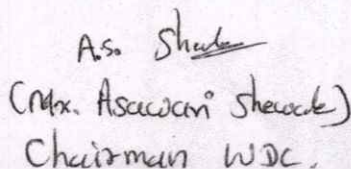 A.S. Shewale
(Mx. Asawari Shewale)
Chairman WDC.